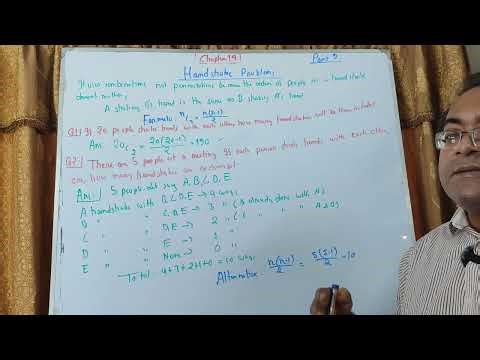 Chapter 19: Part 3
Handshake Problem:
It uses combinations not permutations because the orders of people in a handshake
doesnot matter.
A shaking B's hand is the same as B shaking A's hand
Formula nC2 = n(n-1)/2
Q1: If 20 people shake hands with each other, how many handshakes will be there in total?
Ans: 20C2 = 20(20-1)/2 = 190
Q2: There are 5 people at a meeting. If each person shake hands with each other,
how many handshakes
Ans: 5 people, let say A, B, C, D, E
A handshake with B, C, D, E → 4 ways
B " " C, D, E → 3 (B already done with A)
C " " D, E → 2 (C " " " A & B)
D " " E → 1
E " " None → 0
Total 4+3+2+1+0 = 10 ways
Alternative n(n-1)/2 = 5(5-1)/2 = 10